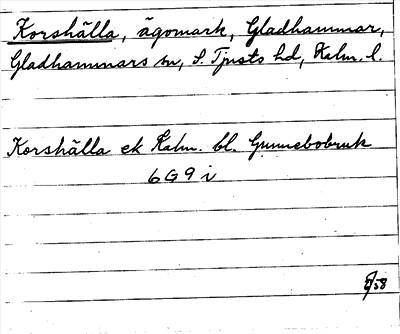 Korshälla, ägomark, Gladhammar,
Gladhammars sn, S. Tjusts hd, Kalm. l.
Korshälla ek Kalm. bl. Gunnebobruk
6G9i